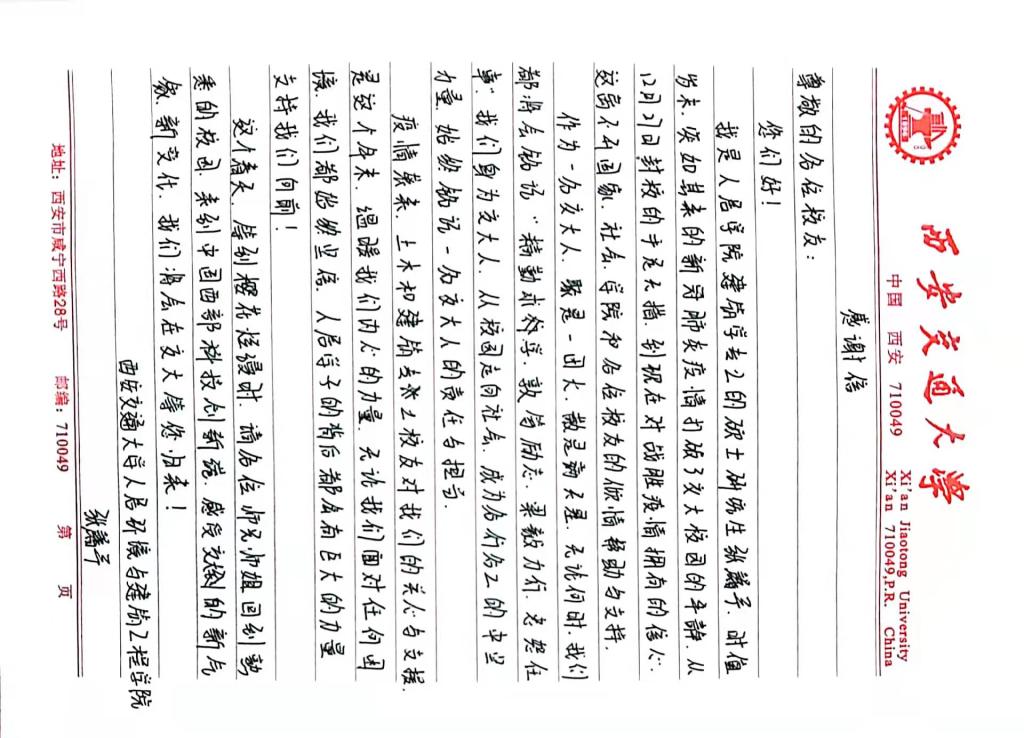 西安交通大学
Xi'an Jiaotong University
中国 西安 710049
Xi'an 710049,P.R. China
感谢信
尊敬的各位校友：
您们好！
我是人居学院建筑学专业的硕士研究生张馨予．时值
岁末，突如其来的新冠肺炎疫情打破了交大校园的平静．从
12月21日封校的手足无措，到现在对战胜疫情拥有的信心，
这离不开国家、社会、学院和各位校友的倾情帮助与支持．
作为一名交大人，聚是一团火，散是满天星．无论何时，我们
都将会铭记"精勤求学，敦笃励志，果毅力行，忠恕任
事"．我们身为交大人，从校园走向社会，成为各行各业的中坚
力量，始终铭记一名交大人的责任与担当．
疫情袭来，土木和建筑专业校友对我们的关心与支援，
是这个年末，温暖我们内心的力量．无论我们面对任何困
境，我们都始终坚信，人居学子的背后都会有巨大的力量
支持我们向前！
这个春天，等到樱花烂漫时，请各位师兄师姐回到熟
悉的校园，来到中国西部科技创新港，感受交大的新气
象，新交代，我们将会在交大等你归来！
西安交通大学人居环境与建筑工程学院
张馨予
地址：西安市咸宁西路28号 邮编：710049 第 页